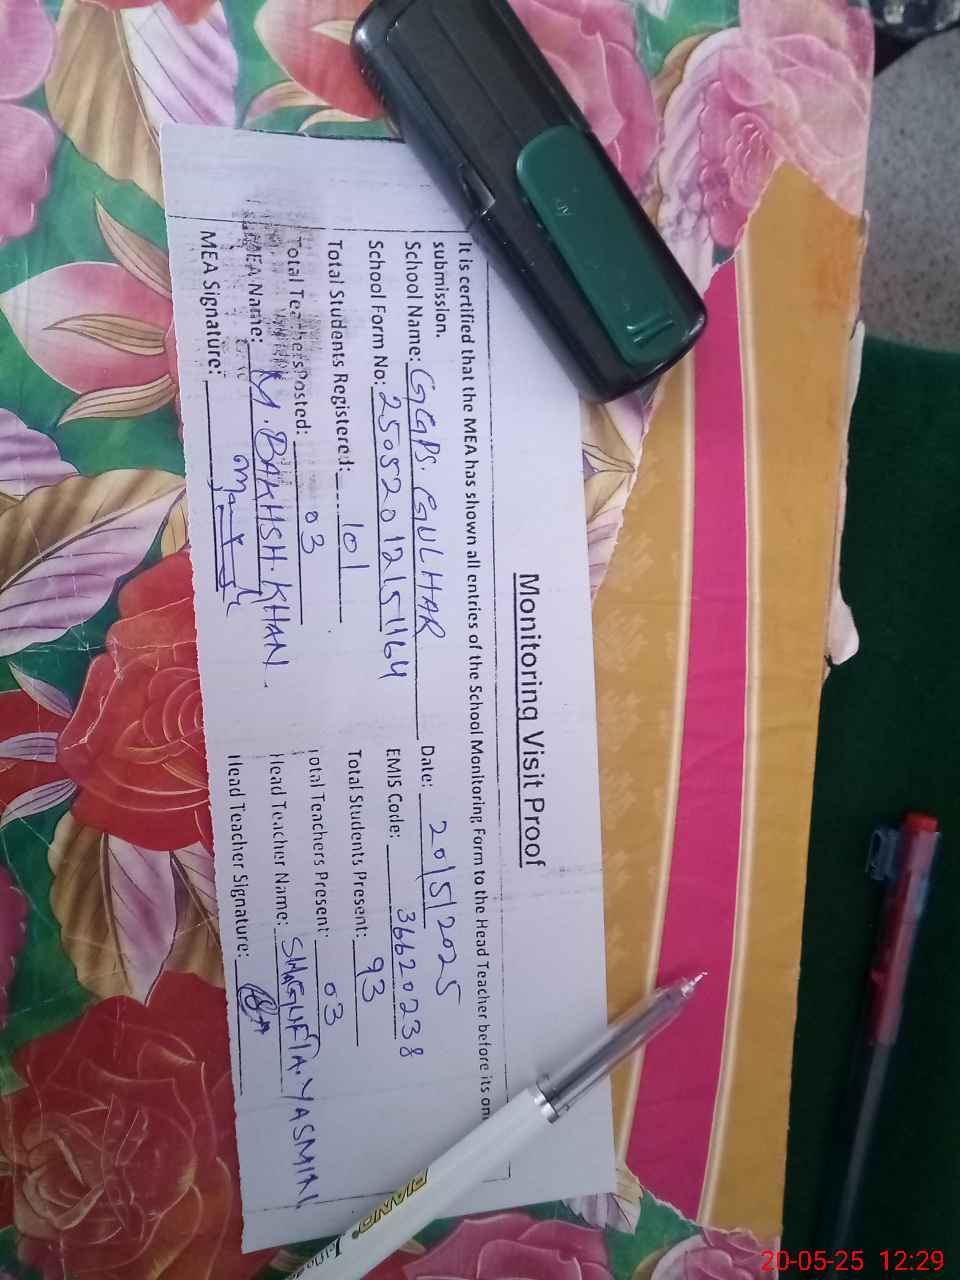 Monitoring Visit Proof
It is certified that the MEA has shown all entries of the School Monitoring Form to the Head Teacher before its
submission.
School Name: GGPS. GULHAR Date: 20/5/2025
School Form No: 25052012151164 EMIS Code: 36620238
Total Students Registered: 101 Total Students Present: 93
Total Teachers Posted: 03 Total Teachers Present: 03
MEA Name: M. BAKHSH. KHAN. Head Teacher Name: SHAGUFTA. YASMIN
MEA Signature: Head Teacher Signature:
PIANO
20-05-25 12:29